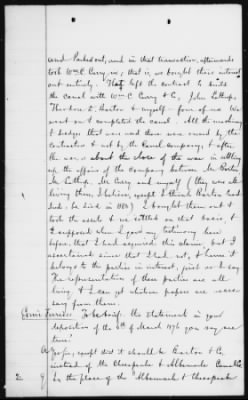 and Parks out, and in that transaction, afterwards
took Wm C. Curry, in; that is, we bought these interest
out entirely. That left the contract to build
the canal with Wm C Curry & Co, John Lathrop,
Theodore D. Barton & myself - four of us. We
went on & completed the canal. All the machinery
& dredges that were used there was owned by the
contractors & not by the Canal company; & after
the war, or about the close of the war in settling
up the affairs of the company between Mr. Barton
Mr Lathrop, Mr. Curry and myself (they was all
living then, I believe, except I think Barton had
died; he died in 1863) I bought them out &
took the assets & we settled on that basis, &
I supposed when I gave my testimony here
before, that I had acquired this claim, but I
ascertained since that I had not, & hence it
belongs to the parties in interest, just as I say.
The representatives of these parties are all
living, & I can get whatever papers are necessary
from them.
Comr Ferriss: Is the statement in your
deposition of the 6th of March 1876 you say
true?
A Yes sir, except that it should be Barton & Co,
instead of the Chesapeake & Albemarle Canal Co.
2 Q In the place of the Albemarle & Chesapeake